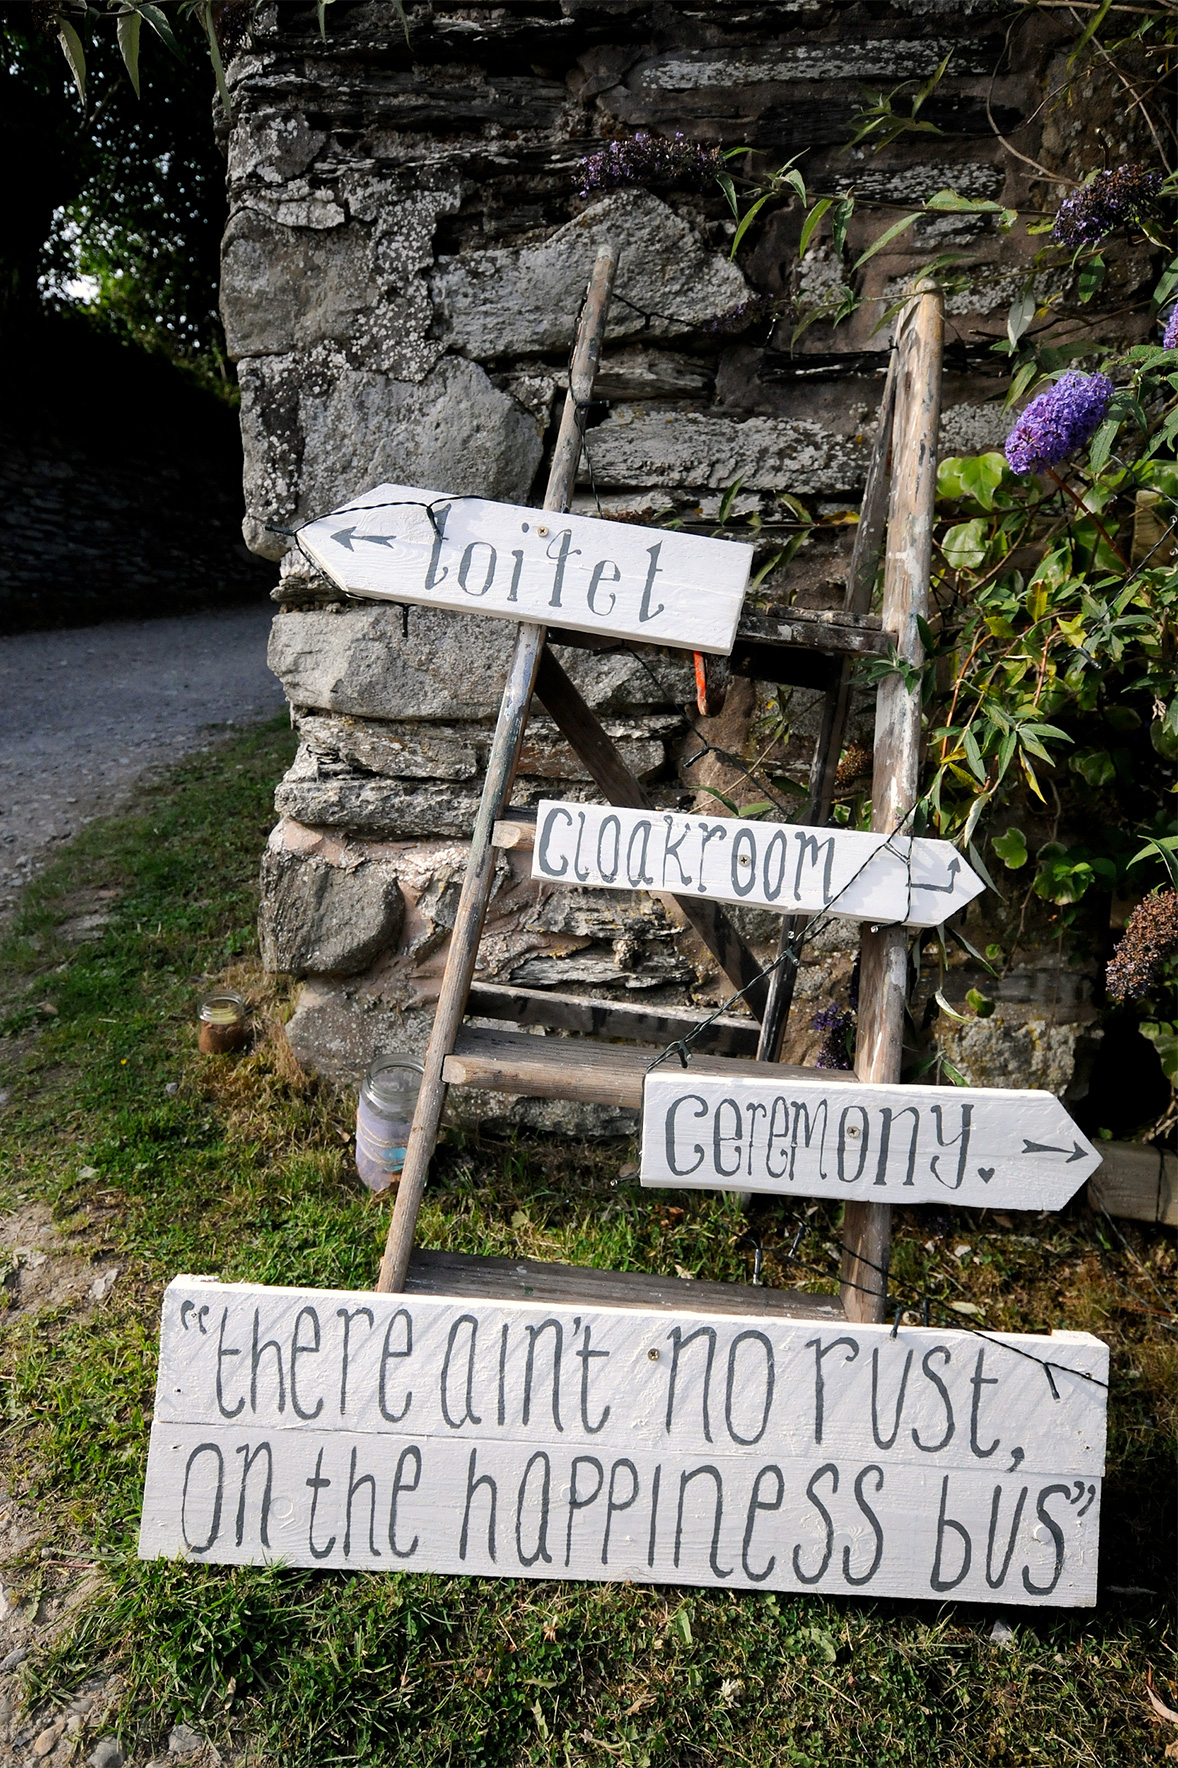 toilet
cloakroom
ceremony.
"there ain't no rust,
on the happiness bus"